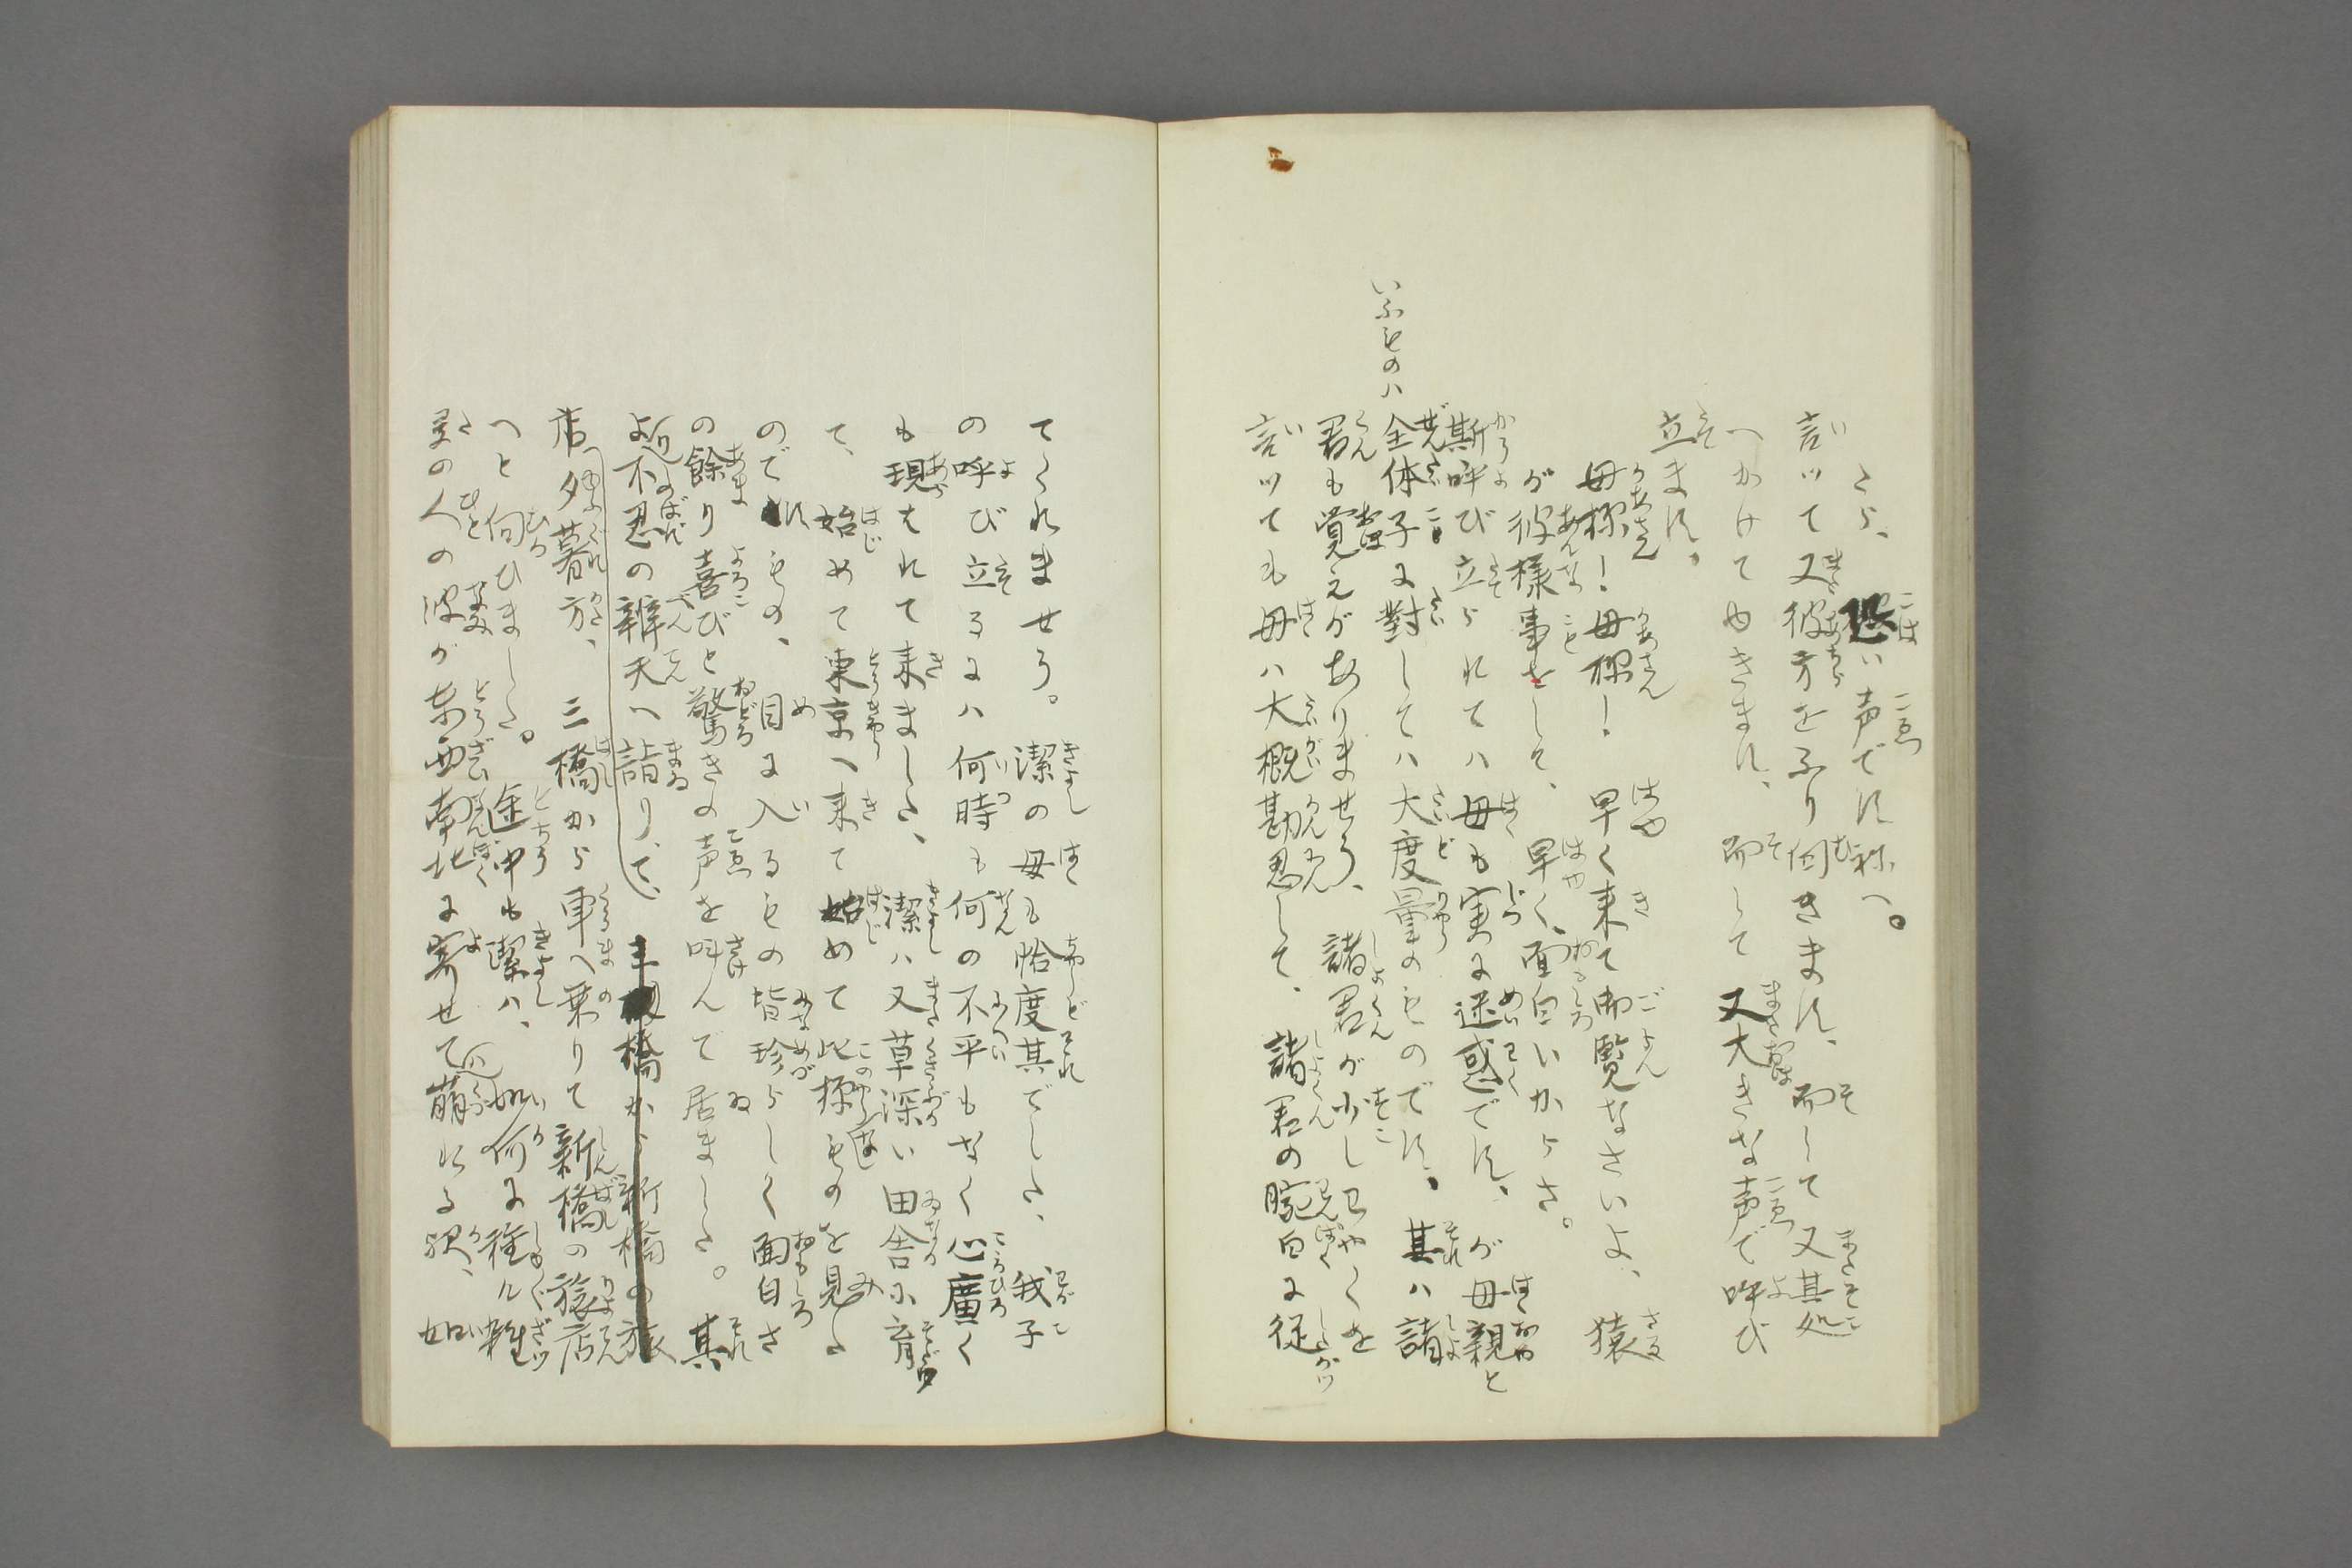 たら、恐い声ですねへ。
言ツて又彼方をふり向きます、而して又其処
へかけてゆきます、而して又大きな声で呼び
立ます。
母様！母様！早く来て御覧なさいよ、猿
が彼様事をして、早く、面白いからさ。
斯呼び立られてハ母も実に迷惑です、が母親と
いふものハ
全体子に對してハ大度量のものです、其ハ諸
君も覚えがありませう、諸君が少しわやくを
言ツても母ハ大概勘忍して、諸君の腕白に従
てくれませう。潔の母も恰度其でした、我子
の呼び立るにハ何時も何の不平もなく心廣く
も現はれて来ました、潔ハ又草深い田舎に育ツ
て、始めて東京へ来て始めて此様ものを見た
のですもの、目に入るもの皆珍らしく面白さ
の餘り喜びと驚きの声を叫んで居ました。其
より不忍の辨天へ詣り、て、
店へ夕暮方、三橋から車へ乗りて新橋の旅店
へと向ひました。途中も潔ハ、如何に種ル雑
多の人の波が東西南北に寄せて崩れる歟、如